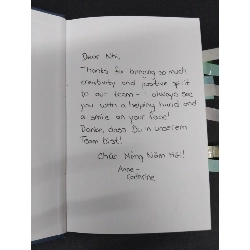 Dear Nhi,
Thanks for bringing so much
creativity and positive spirit
to our team - I always see
you with a helping hand and
a smile on your face!
Danke, dass Du in unserem
Team bist!
Chúc Mừng Năm Mới!
Anne-
Catherine